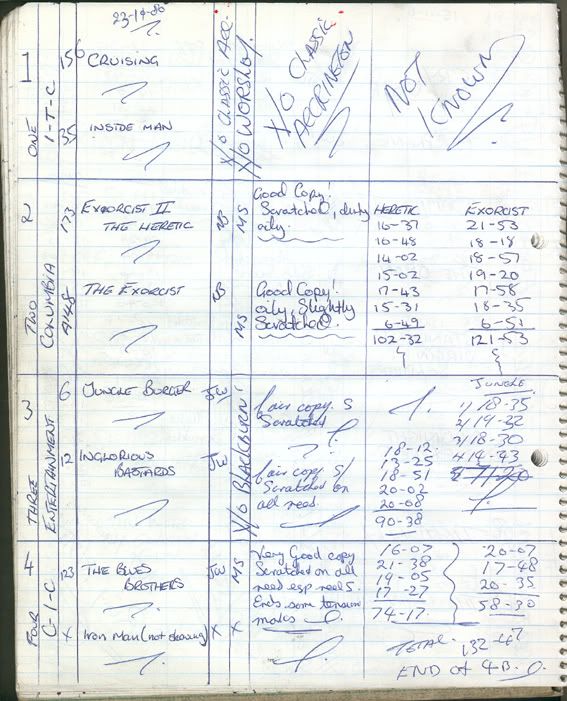 1
ONE
I-T-C
156
CRUISING
35
INSIDE MAN
X/O CLASSIC ACC.
X/O WORSHOP.
X/O CLASSIC
ACCRINGTON
NOT
KNOWN
2
TWO
COLUMBIA
173
EXORCIST II
THE HERETIC
MS
Good Copy!
Scratched, dusty
oily.
HERETIC
16-37
16-48
14-02
15-02
17-43
15-31
6-49
102-32
EXORCIST
21-53
18-18
18-57
19-20
17-58
18-35
6-51
121-53
THE EXORCIST
MS
Good Copy!
oily, Slightly
Scratched.
3
THREE
ENTERTAINMENT
6
JUNGLE BURGER
JW
X/O BLACKBURN!
fair copy. S
Scratched
JUNGLE
1/ 18-35
2/ 19-32
3/ 18-30
4/ 14-43
12
INGLORIOUS
BASTARDS
JW
fair copy S/
Scratched on
all reed.
18-12
13-25
18-51
20-02
20-08
90-38
4
FOUR
C-I-C
123
THE BLUES
BROTHERS
JW
MS
Very Good copy
Scratched on all
reed esp reel 5.
Ends some tension
marks
16-07
21-38
19-05
17-27
74-17
20-07
17-48
20-35
58-30
X
Iron Man (not showing)
X
X
TOTAL. 132-47
END of 4B.